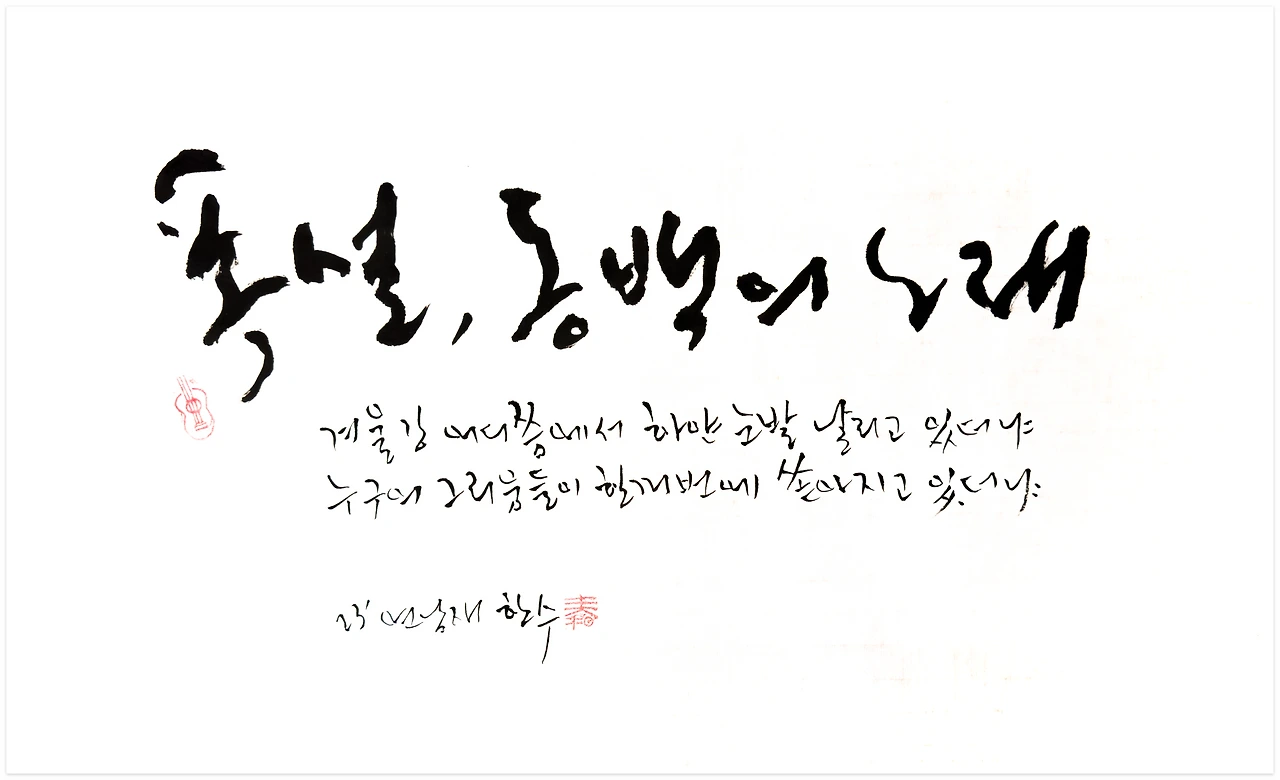 폭설, 동백의 노래
겨울강 어디쯤에서 하얀 눈발 날리고 있더냐
누구의 그리움들이 한꺼번에 쏟아지고 있더냐
23' 연남재 한수